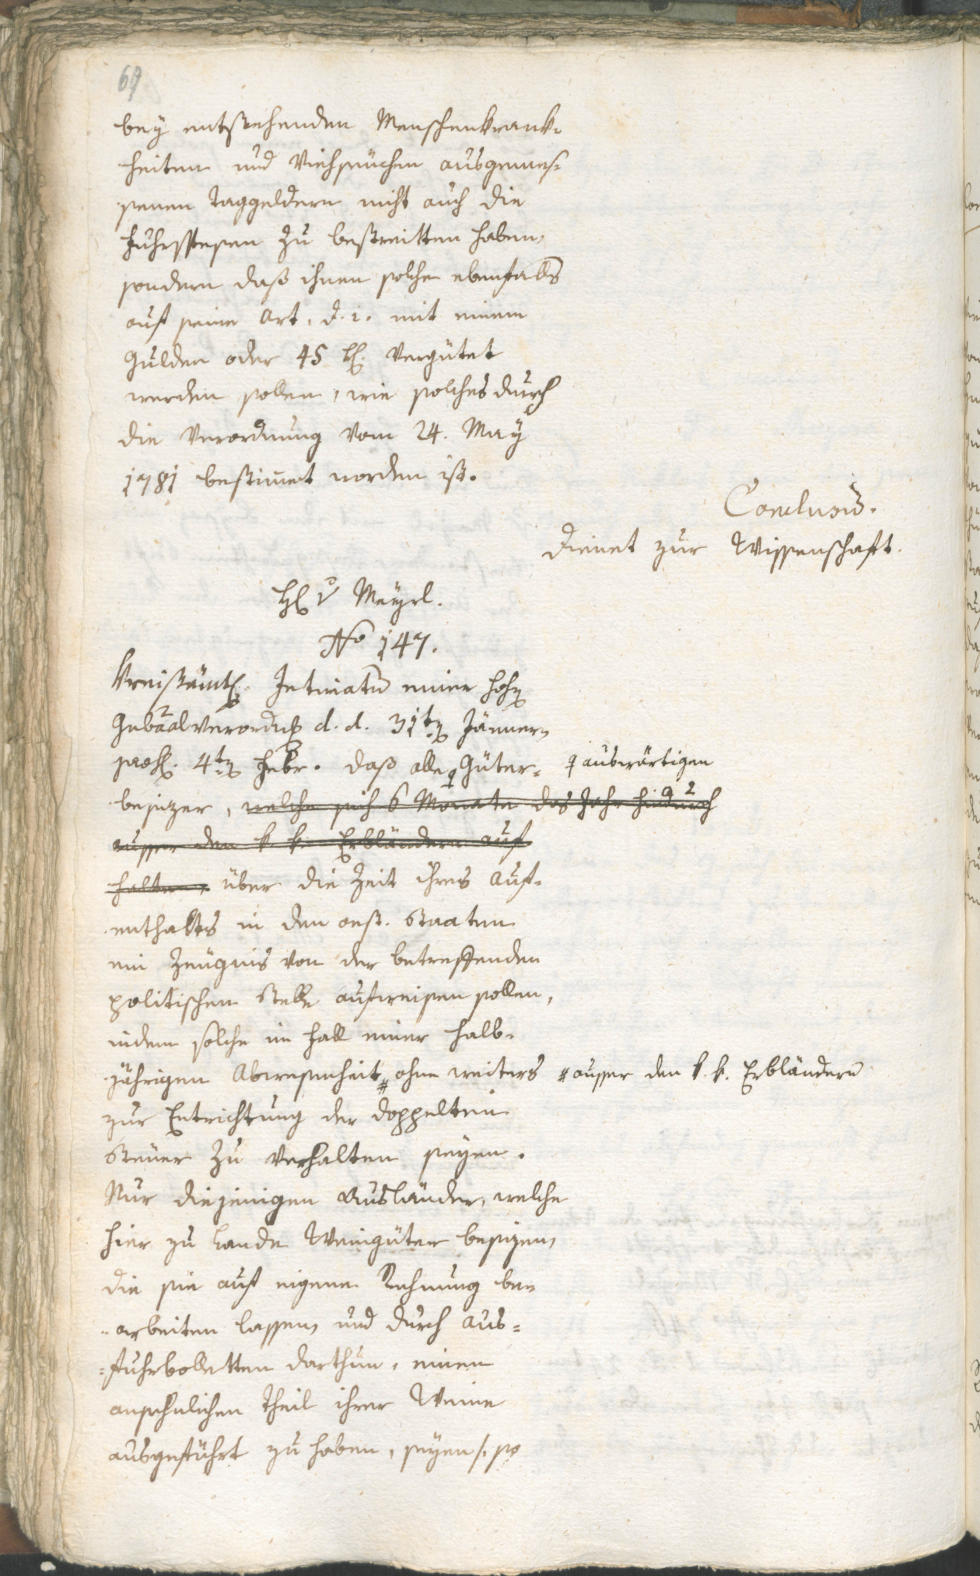 69
bey entstehenden Menschenkrank-
heiten und Viehseuchen ausgemes-
senen Taggeldern nicht auch die
Fuhrspesen zu bestreitten haben,
sondern daß ihnen solche ebenfalls
auf seine Art, d. i. mit einem
Gulden oder 45 kr. vergütet
werden sollen, wie solches durch
die Verordnung vom 24. May
1781 bestimt worden ist.
Conclusum.
Dienet zur Wissenschaft.
H. v Mayrl.
No 147.
Kreisämtl. Intimatum einer hohen
Gub'aalverordng d. d. 31ten Jänner,
praes. 4ten Febr. daß alle Güter- auswärtigen
besizer, welche sich 6 Monate des Jahr hindurch
ausser den k. k. Erbländern auf
halten, über die Zeit ihres Auf-
enthalts in den oest. Staaten
ein Zeugnis von der betreffenden
politischen Stelle aufweisen sollen,
indem solche im Fall einer halb-
jährigen Abwesenheit # ohne weiters # ausser den k. k. Erbländern
zur Entrichtung der doppelten
Steuer zu verhalten seyen.
Nur diejenigen Ausländer, welche
hier zu Lande Weingüter besizen,
die sie auf eigene Rechnung be-
arbeiten lassen, und durch Aus-
fuhrbolletten darthun, einen
ansehnlichen Theil ihrer Weine
ausgeführt zu haben, seyen /: so